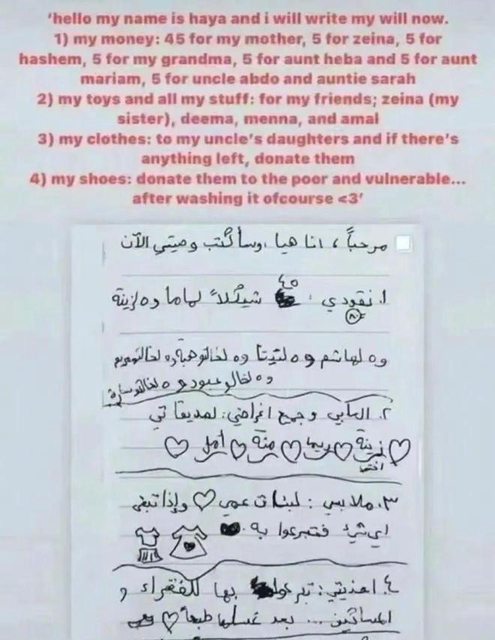 ‘hello my name is haya and i will write my will now.
1) my money: 45 for my mother, 5 for zeina, 5 for
hashem, 5 for my grandma, 5 for aunt heba and 5 for aunt
mariam, 5 for uncle abdo and auntie sarah
2) my toys and all my stuff: for my friends; zeina (my
sister), deema, menna, and amal
3) my clothes: to my uncle’s daughters and if there’s
anything left, donate them
4) my shoes: donate them to the poor and vulnerable...
after washing it ofcourse <3’
مرحباً، أنا هيا، وسأكتب وصيتي الآن
١. نقودي : ٤٥ شيكلاً لماما و٥ لزينة
٨٠
و٥ لهاشم و٥ لتيتا و٥ لخالتو هبة و٥ لخالتو مريم
و٥ لخالو عبود و٥ لخالتو سارة
٢. ألعابي وجميع أغراضي: لصديقاتي
زينة ♡ ريما ♡ منة ♡ أمل ♡
أختي
٣. ملابسي : لبنات عمي ♡ وإذا تبقى
اي شيء فتبرعوا به
٤. احذيتي : تبرعوا بها للفقراء و
المساكين ... بعد غسلها طبعاً ♡